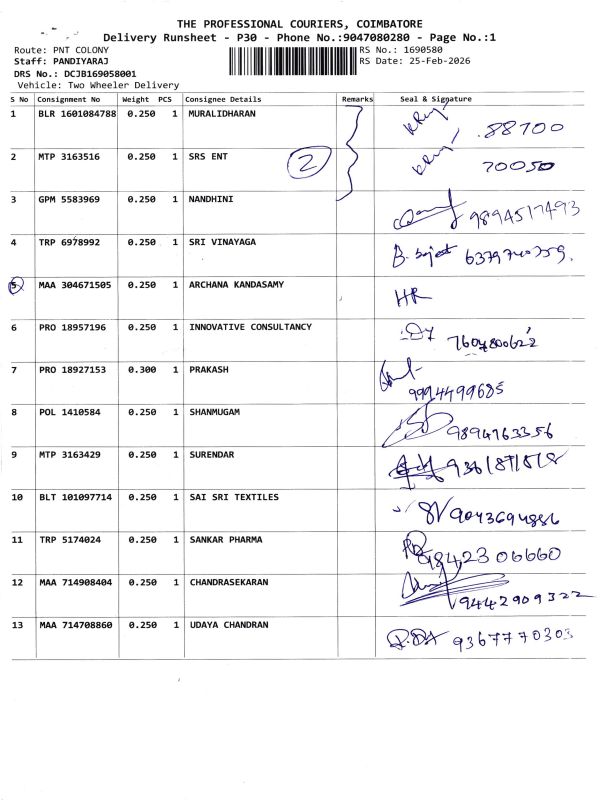 THE PROFESSIONAL COURIERS, COIMBATORE
Delivery Runsheet - P30 - Phone No.:9047080280 - Page No.:1
Route: PNT COLONY RS No.: 1690580
Staff: PANDIYARAJ RS Date: 25-Feb-2026
DRS No.: DCJB169058001
Vehicle: Two Wheeler Delivery
S No Consignment No Weight PCS Consignee Details Remarks Seal & Signature
1 BLR 1601084788 0.250 1 MURALIDHARAN 88700
2 MTP 3163516 0.250 1 SRS ENT 2 70050
3 GPM 5583969 0.250 1 NANDHINI 9894517493
4 TRP 6978992 0.250 1 SRI VINAYAGA 6379740359
5 MAA 304671505 0.250 1 ARCHANA KANDASAMY HR
6 PRO 18957196 0.250 1 INNOVATIVE CONSULTANCY 7604800622
7 PRO 18927153 0.300 1 PRAKASH 9994499685
8 POL 1410584 0.250 1 SHANMUGAM 9894763356
9 MTP 3163429 0.250 1 SURENDAR
10 BLT 101097714 0.250 1 SAI SRI TEXTILES 9043694886
11 TRP 5174024 0.250 1 SANKAR PHARMA 9842306660
12 MAA 714908404 0.250 1 CHANDRASEKARAN 9442909322
13 MAA 714708860 0.250 1 UDAYA CHANDRAN 9367770303